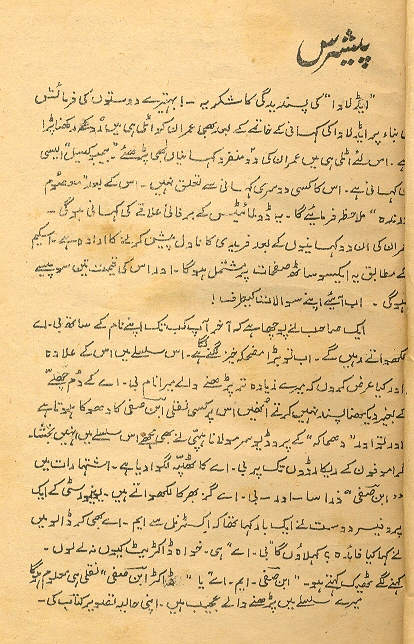 پیشرس
"ایڈلاوا" کی پسندیدگی کا شکریہ ۔! بہتیرے دوستوں کی فرمائش
بناء پر ایڈلاوا کی کہانی کے خاتمے کے بعد بھی عمران کو اٹلی ہی میں
ہے ۔ اس لئے اٹلی ہی میں عمران کی دو منفرد کہانیاں بھی پڑھئے " بیمبو کیسل" ایسی
کہانی ہے ۔ اس کا کسی دوسری کہانی سے تعلق نہیں ۔ اس کے بعد "معصوم
درندہ" ملاحظہ فرمایئے گا ۔ یہ ڈولمائیٹس کے برفانی علاقے کی کہانی ہوگی ۔
عمران کی ان دو کہانیوں کے بعد فریدی کا ناول پیش کرنے کا ارادہ ہے ۔ اسکیم
کے مطابق یہ ایکسو ساٹھ صفحات پر مشتمل ہوگا ۔ اور اس کی قیمت تین سو پیسے
ہوگی ۔ اب آیئے اپنے سوالات کیطرف !
ایک صاحب نے پوچھا ہے کہ آخر آپ کب تک اپنے نام کے ساتھ بی ۔ اے
لکھواتے رہیں گے ۔ اب تو بڑا مضحکہ خیز لگنے لگا ہے ۔ اس سلسلے میں اس کے علاوہ
اور کیا عرض کروں کہ میرے زیادہ تر پڑھنے والے میرا نام بی ۔ اے کے دُم چھلّے
کے بغیر دیکھنا پسند نہیں کرتے انھیں اس پر کسی نقلی ابن صفی کا دھوکا ہوتا ہے
اور تو اور " دھماکہ" کے پروڈیوسر مولانا ہپی نے بھی مجھے اس سلسلے میں نہیں بخشا ۔
گراموفون کے ریکارڈوں تک پر بی ۔ اے کا ٹھپہ لگوا دیا ہے ۔ اشتہارات میں
"ابن صفی" ذرا سا ۔ اور ۔ بی ۔ اے گز بھر کا لکھواتے ہیں ۔ یونیورسٹی کے ایک
پروفیسر دوست نے ایک بار کہا تھا کہ اکسٹرنل سے ایم ۔ اے بھی کر ڈالو میں
نے کہا کیا فائدہ ؟ کہلاؤں گا "بی ۔ اے" ہی ۔ خواہ ڈاکٹریٹ کیوں نہ لے لوں ۔
کہنے لگے ٹھیک کہتے ہو ۔ "ابن صفی ۔ ایم ۔ اے" یا " ڈاکٹر ابن صفی" نقلی ہی معلوم ہوگا
میرے سلسلے میں پڑھنے والے عجیب ہیں ۔ اپنی حالیہ تصویر کتاب کی ۔